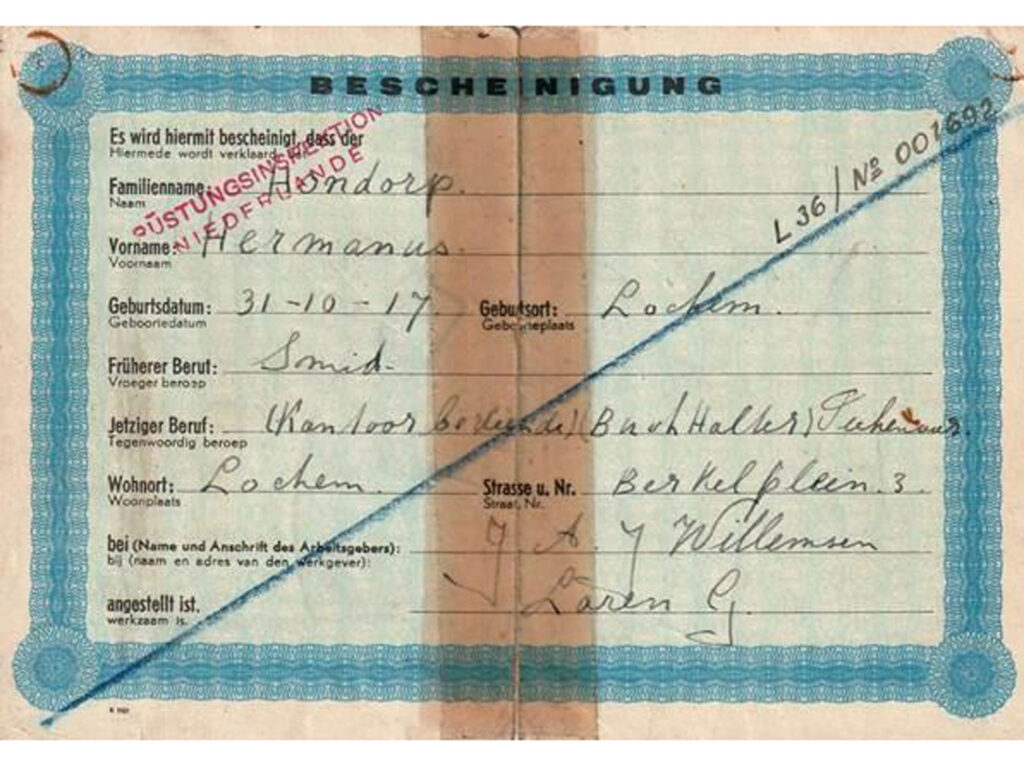 BESCHEINIGUNG
Es wird hiermit bescheinigt, dass der
Hiermede wordt verklaard
RÜSTUNGSINSPEKTION
NIEDERLANDE
L 36 / № 001692
Familienname: Hondorp.
Naam
Vorname: Hermanus.
Voornaam
Geburtsdatum: 31-10-17. Geburtsort: Lochem.
Geboortedatum Geboorteplaats
Früherer Beruf: Smid.
Vroeger beroep
Jetziger Beruf: (Kantoor bediende) (Buchhalter)
Tegenwoordig beroep
Wohnort: Lochem. Strasse u. Nr. Berkelplein. 3.
Woonplaats Straat, Nr.
bei (Name und Anschrift des Arbeitsgebers): J. A. J Willemsen
bij (naam en adres van den werkgever):
angestellt ist. Laren G.
werkzaam is.